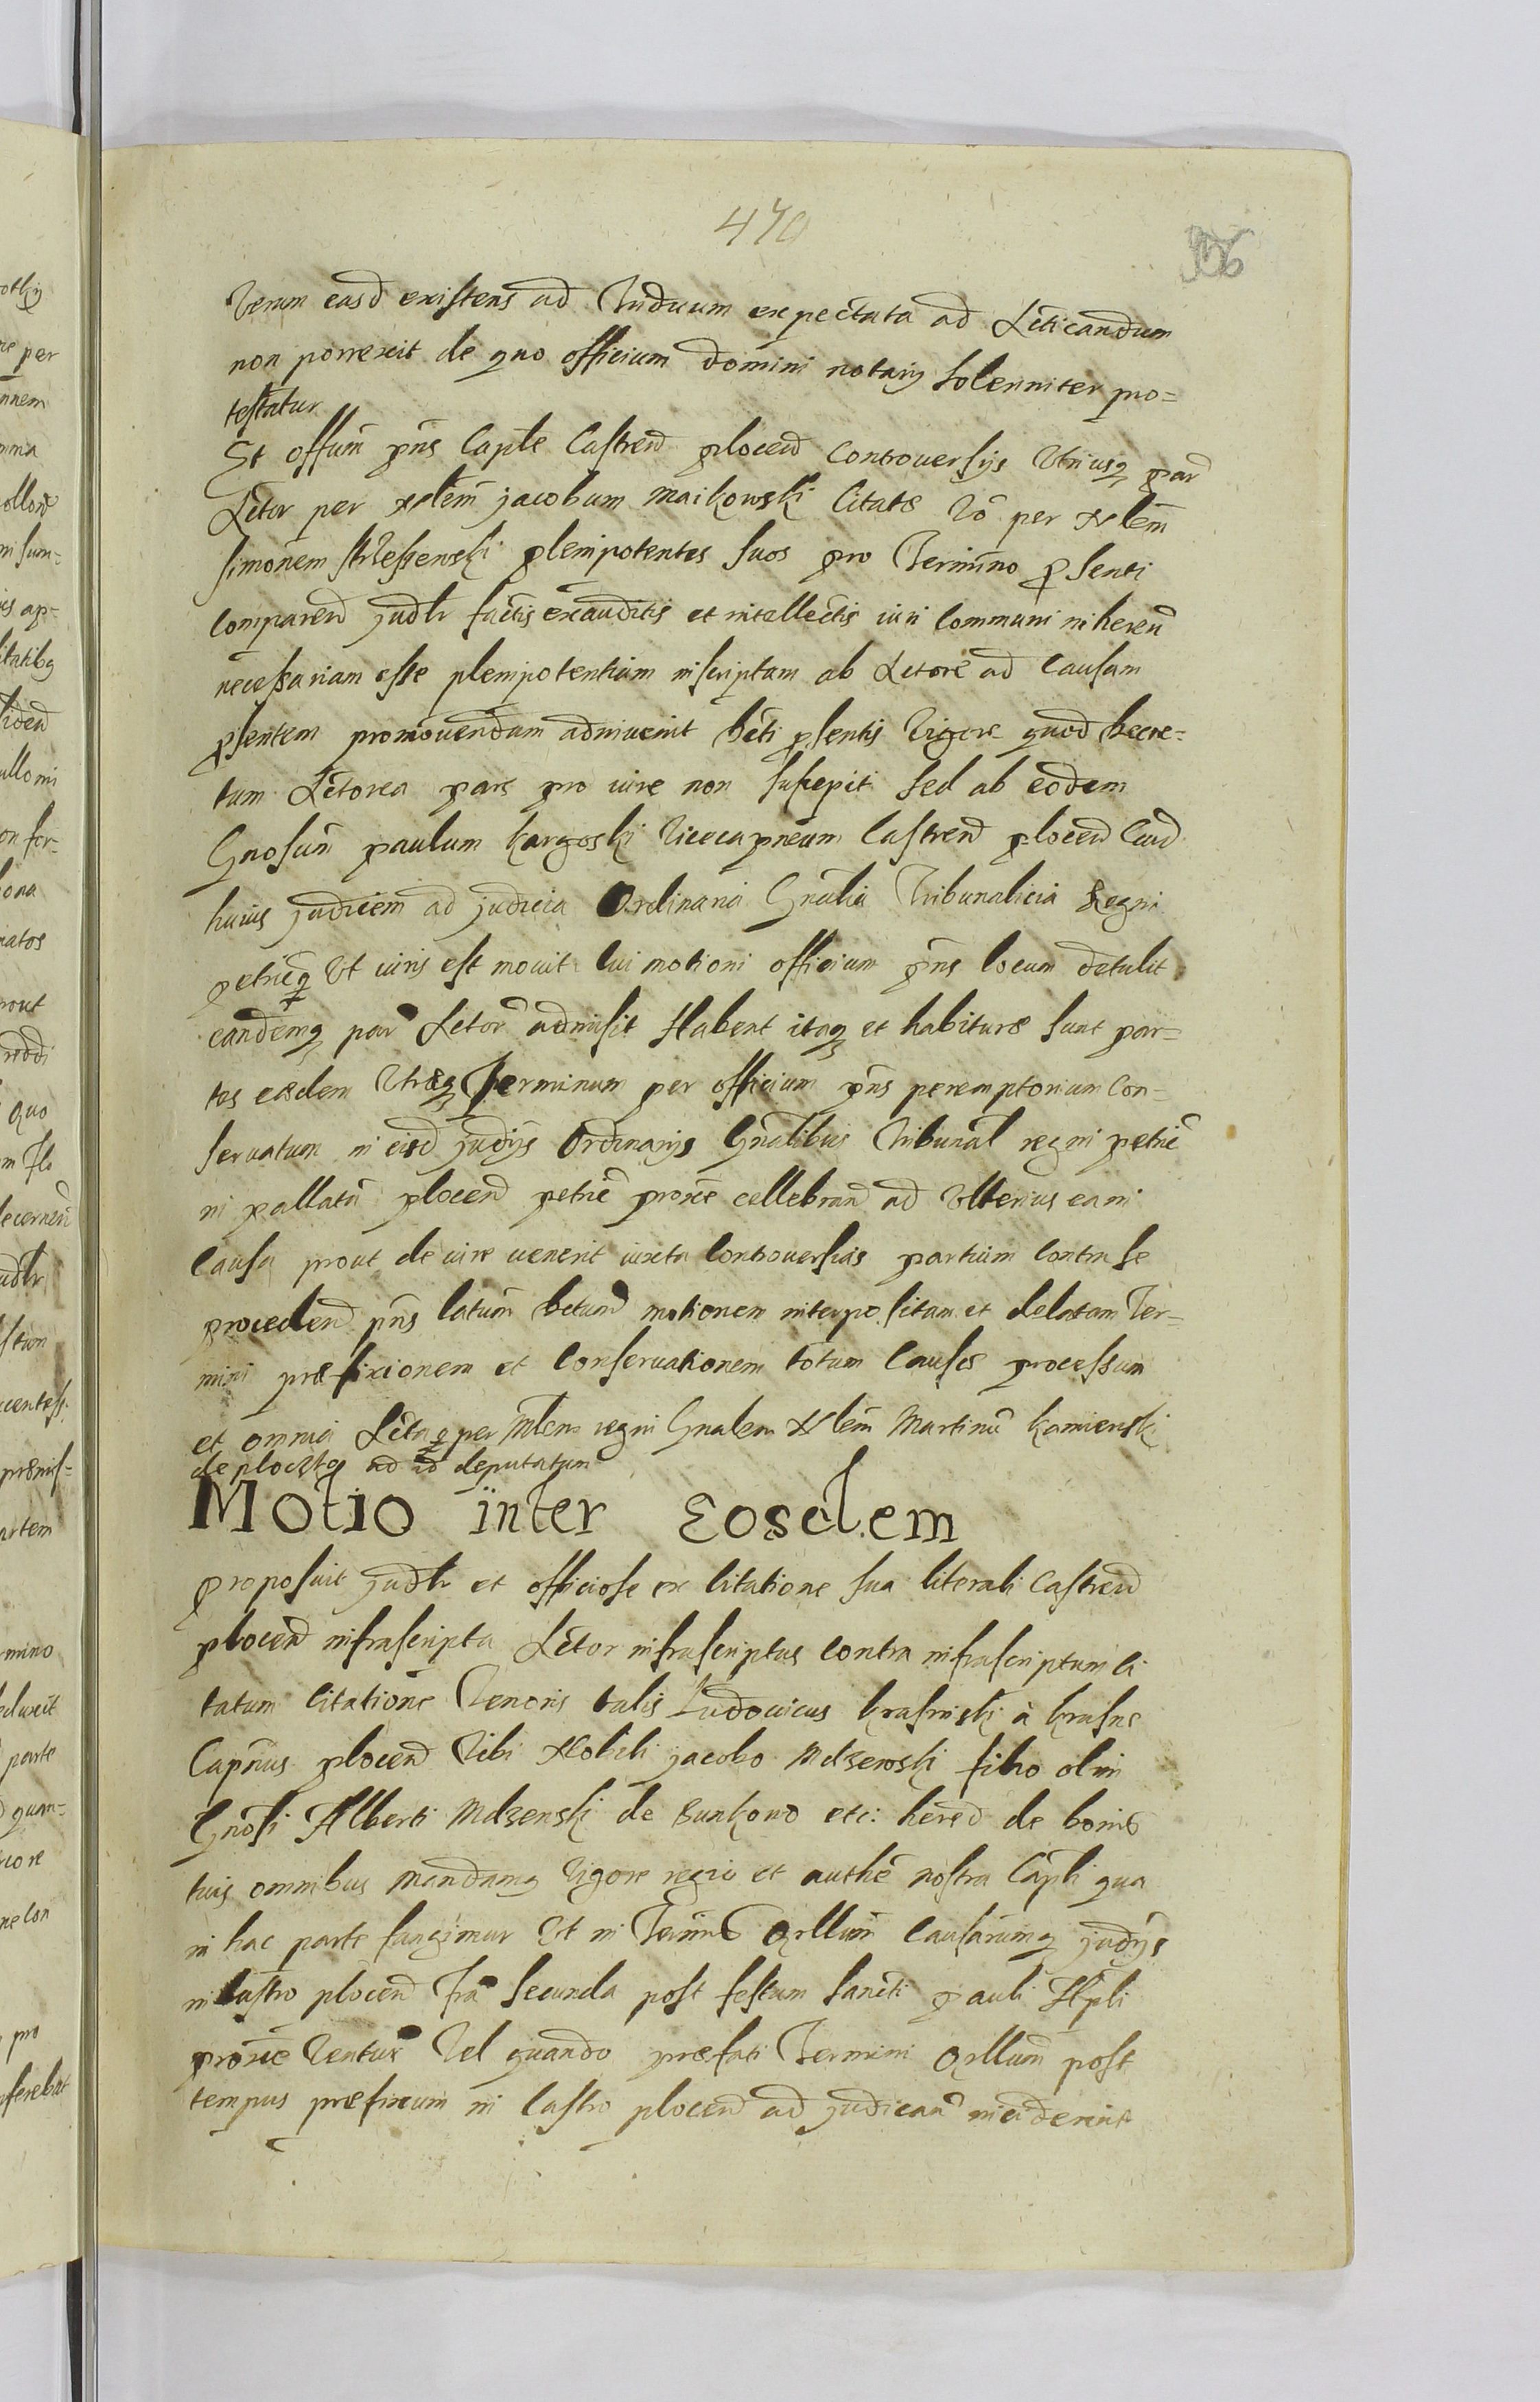 470
Verum easd existens ad Triduum expectata ad Lcticandum
non porrexit de quo officium domini notarij solenniter pro=
testatur
Et offum pns Captle Castren plocen Controversijs Utriusq par
Letor per Nlem jacobum Maikowski Citatę Vo per Nlem
simonem plenipotentes suos pro Termino psenti
comparen judlr factis exauditis et intellectis iuri communi inheren
necessariam esse plenipotentiam inscriptam ab Actore ad Causam
psentem promovendam adinuenit Dcti psentis Vigore quod Decre=
tum Lctorea pars pro iure non suscepit sed ab eodem
Gnosum paulum kargoski Vicecapneum Castren plocen
huius judiciem ad judicia Ordinaria Gnalia Tribunalicia Regni
petricq Ut iuris est movit Cui motioni officium pns locum detulit
eandemq par Letor admisit Habent itaq et habiturę sunt par=
tes eędem Utręq Terminum per officium pns peremptorium con=
servatum in eisd judijs Ordinarijs Gnalibus Tribunal regni petric
in pallatu plocen petric proxe cellebran ad Ulterius ea in
Causa prout de iure venerit iuxta Controversias partium Contra se
proceden pns latum Detum motionem interpositam et delatam Ter=
mini pręfixionem et Conservationem totum Causę processum
et omnia Lcta per Mlem regni Gnalem Nlem Martinu kamienski
de ad id deputatum
Motio inter Eosdem
Proposuit judlr et officiose ex Citatione sua literali Castren
plocen infrascripta Lctor infrascriptus Contra infrascriptum Ci
tatum Citatione Tenoris talis Ludovicus krasinski à krasne
Capnus plocen Tibi Nobili jacobo Mdzewski filio olim
Gnosi Alberti Mdzenski de Bunkowo etc: hered de bonis
tuis omnibus Mandamq Vigore regio et authe nostra Capli qua
in hac parte fungimur Ut in Terinis Qrllum Causarumq judijs
in Castro plocen fra secunda post festum sancti Pauli Apli
proxe Ventur Vel quando pręfati Termini Qrllum post
tempus pręfixum in Castro plocen ad judican inciderint